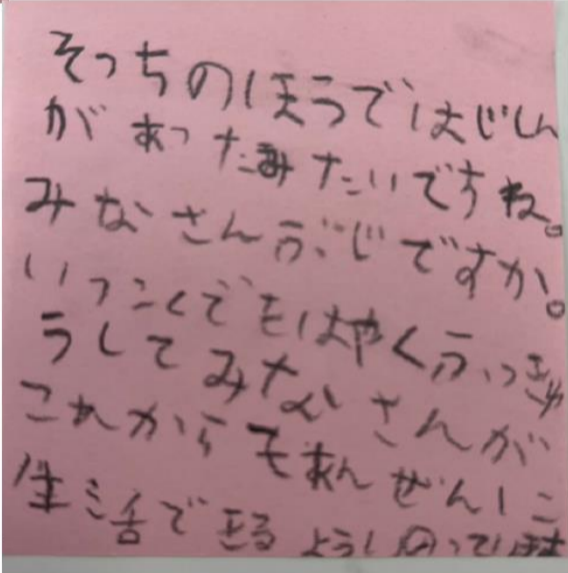 そっちのほうではじしん
があったみたいですね。
みなさんぶじですか。
いっこくでもはやくふっきゅ
うしてみなさんが
これからもあんぜんに
生活できるようねがっています